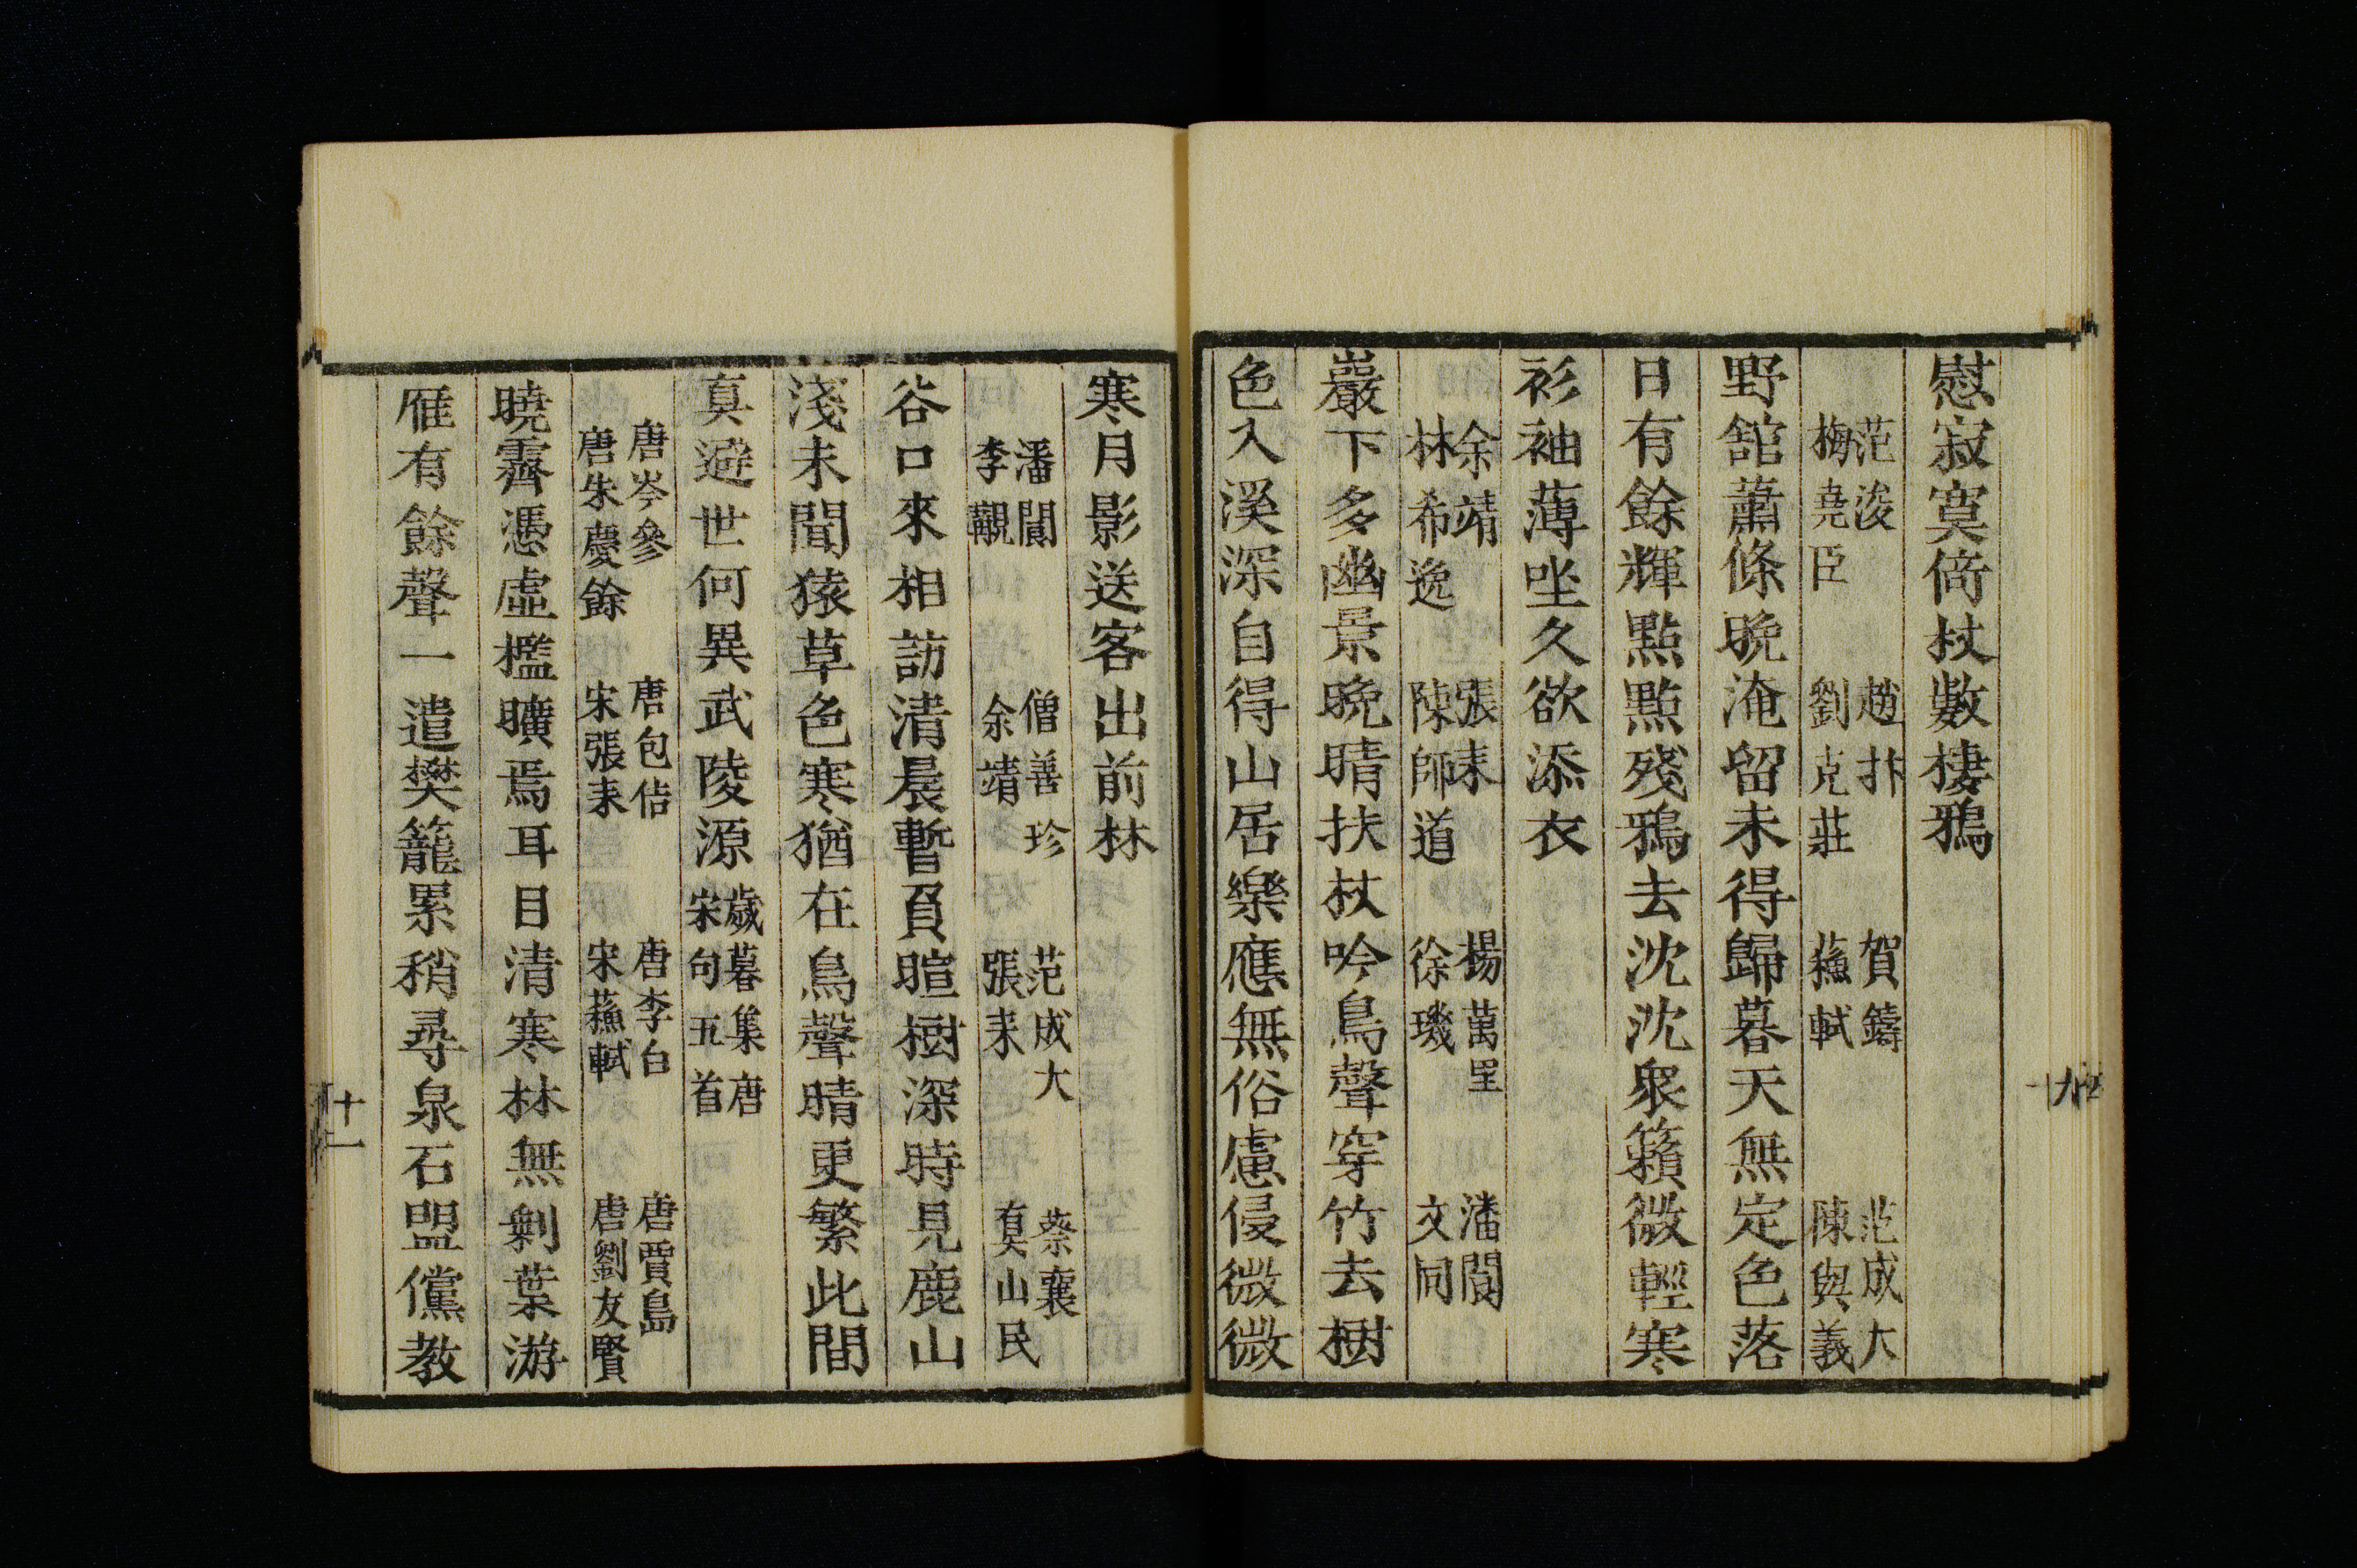 慰寂寞倚杖數棲鴉
范浚 趙抃 賀鑄 范成大
梅堯臣 劉克莊 蘓軾 陳與義
野舘蕭條晩淹留未得歸暮天無定色落
日有餘輝點點殘鴉去沈沈衆籟微輕寒
衫袖薄坐久欲添衣
余靖 張耒 揚萬里 潘閬
林希逸 陳師道 徐璣 文同
巖下多幽景晩晴扶杖吟鳥聲穿竹去樹
色入溪深自得山居樂應無俗慮侵微微
九
寒月影送客出前林
潘閬 僧善珍 范成大 蔡襄
李覯 余靖 張耒 眞山民
谷口來相訪清晨暫負暄樹深時見鹿山
淺未聞猿草色寒猶在鳥聲晴更繁此間
眞避世何異武陵源
歳暮集唐
宋句五首
唐岑參 唐包佶 唐李白 唐賈島
唐朱慶餘 宋張耒 宋蘓軾 唐劉友賢
曉霽憑虛檻曠焉耳目清寒林無剩葉游
雁有餘聲一遣樊籠累稍尋泉石盟儻教
十一